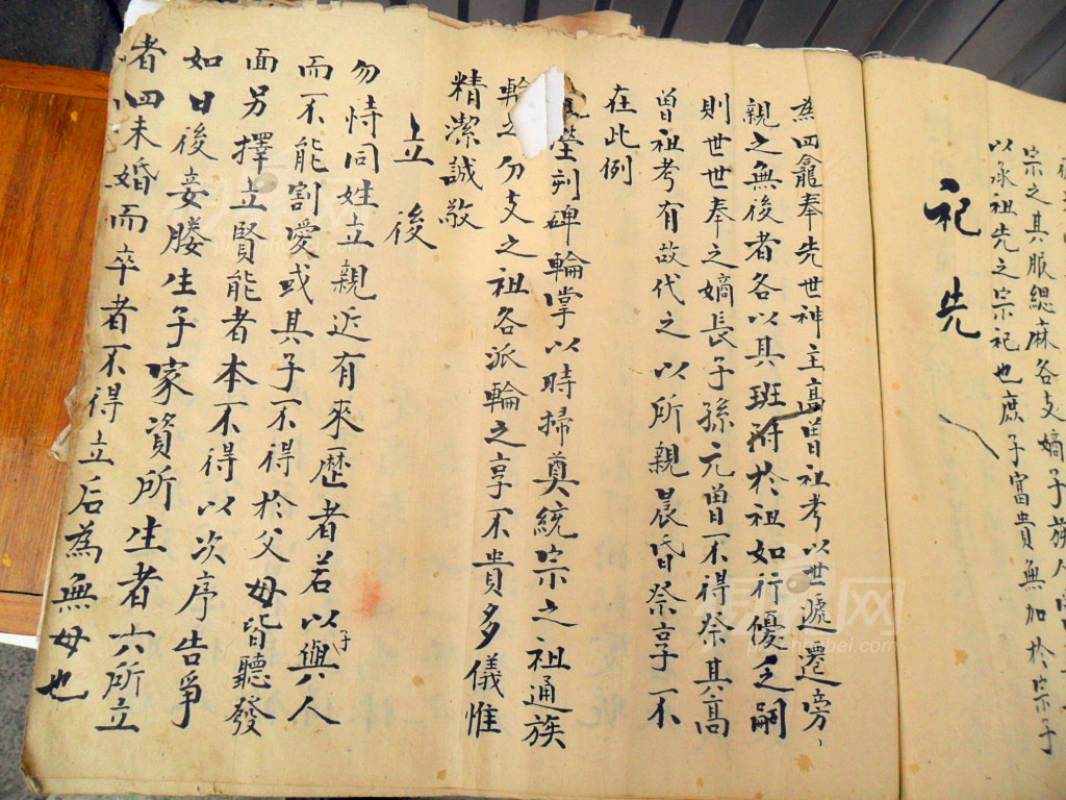 宗之其服緦麻各支嫡子族人
以承祖先之宗祀也庶子富貴無加於宗子
祀先
為四龕奉先世神主高曾祖考以世遞遷旁
親之無後者各以其班祔於祖如行優乏嗣
則世世奉之嫡長子孫元曾不得祭其高
曾祖考有故代之以所親晨昏祭享不
在此例
塋刋碑輪掌以時掃奠統宗之祖通族
輪之分支之祖各派輪之享不貴多儀惟
精潔誠敬
立後
勿恃同姓立親近有來歷者若以子與人
而不能割愛或其子不得於父母皆聽發
面另擇立賢能者本不得以次序告爭
如日後妾媵生子家資所生者六所立
者四未婚而卒者不得立后為無母也